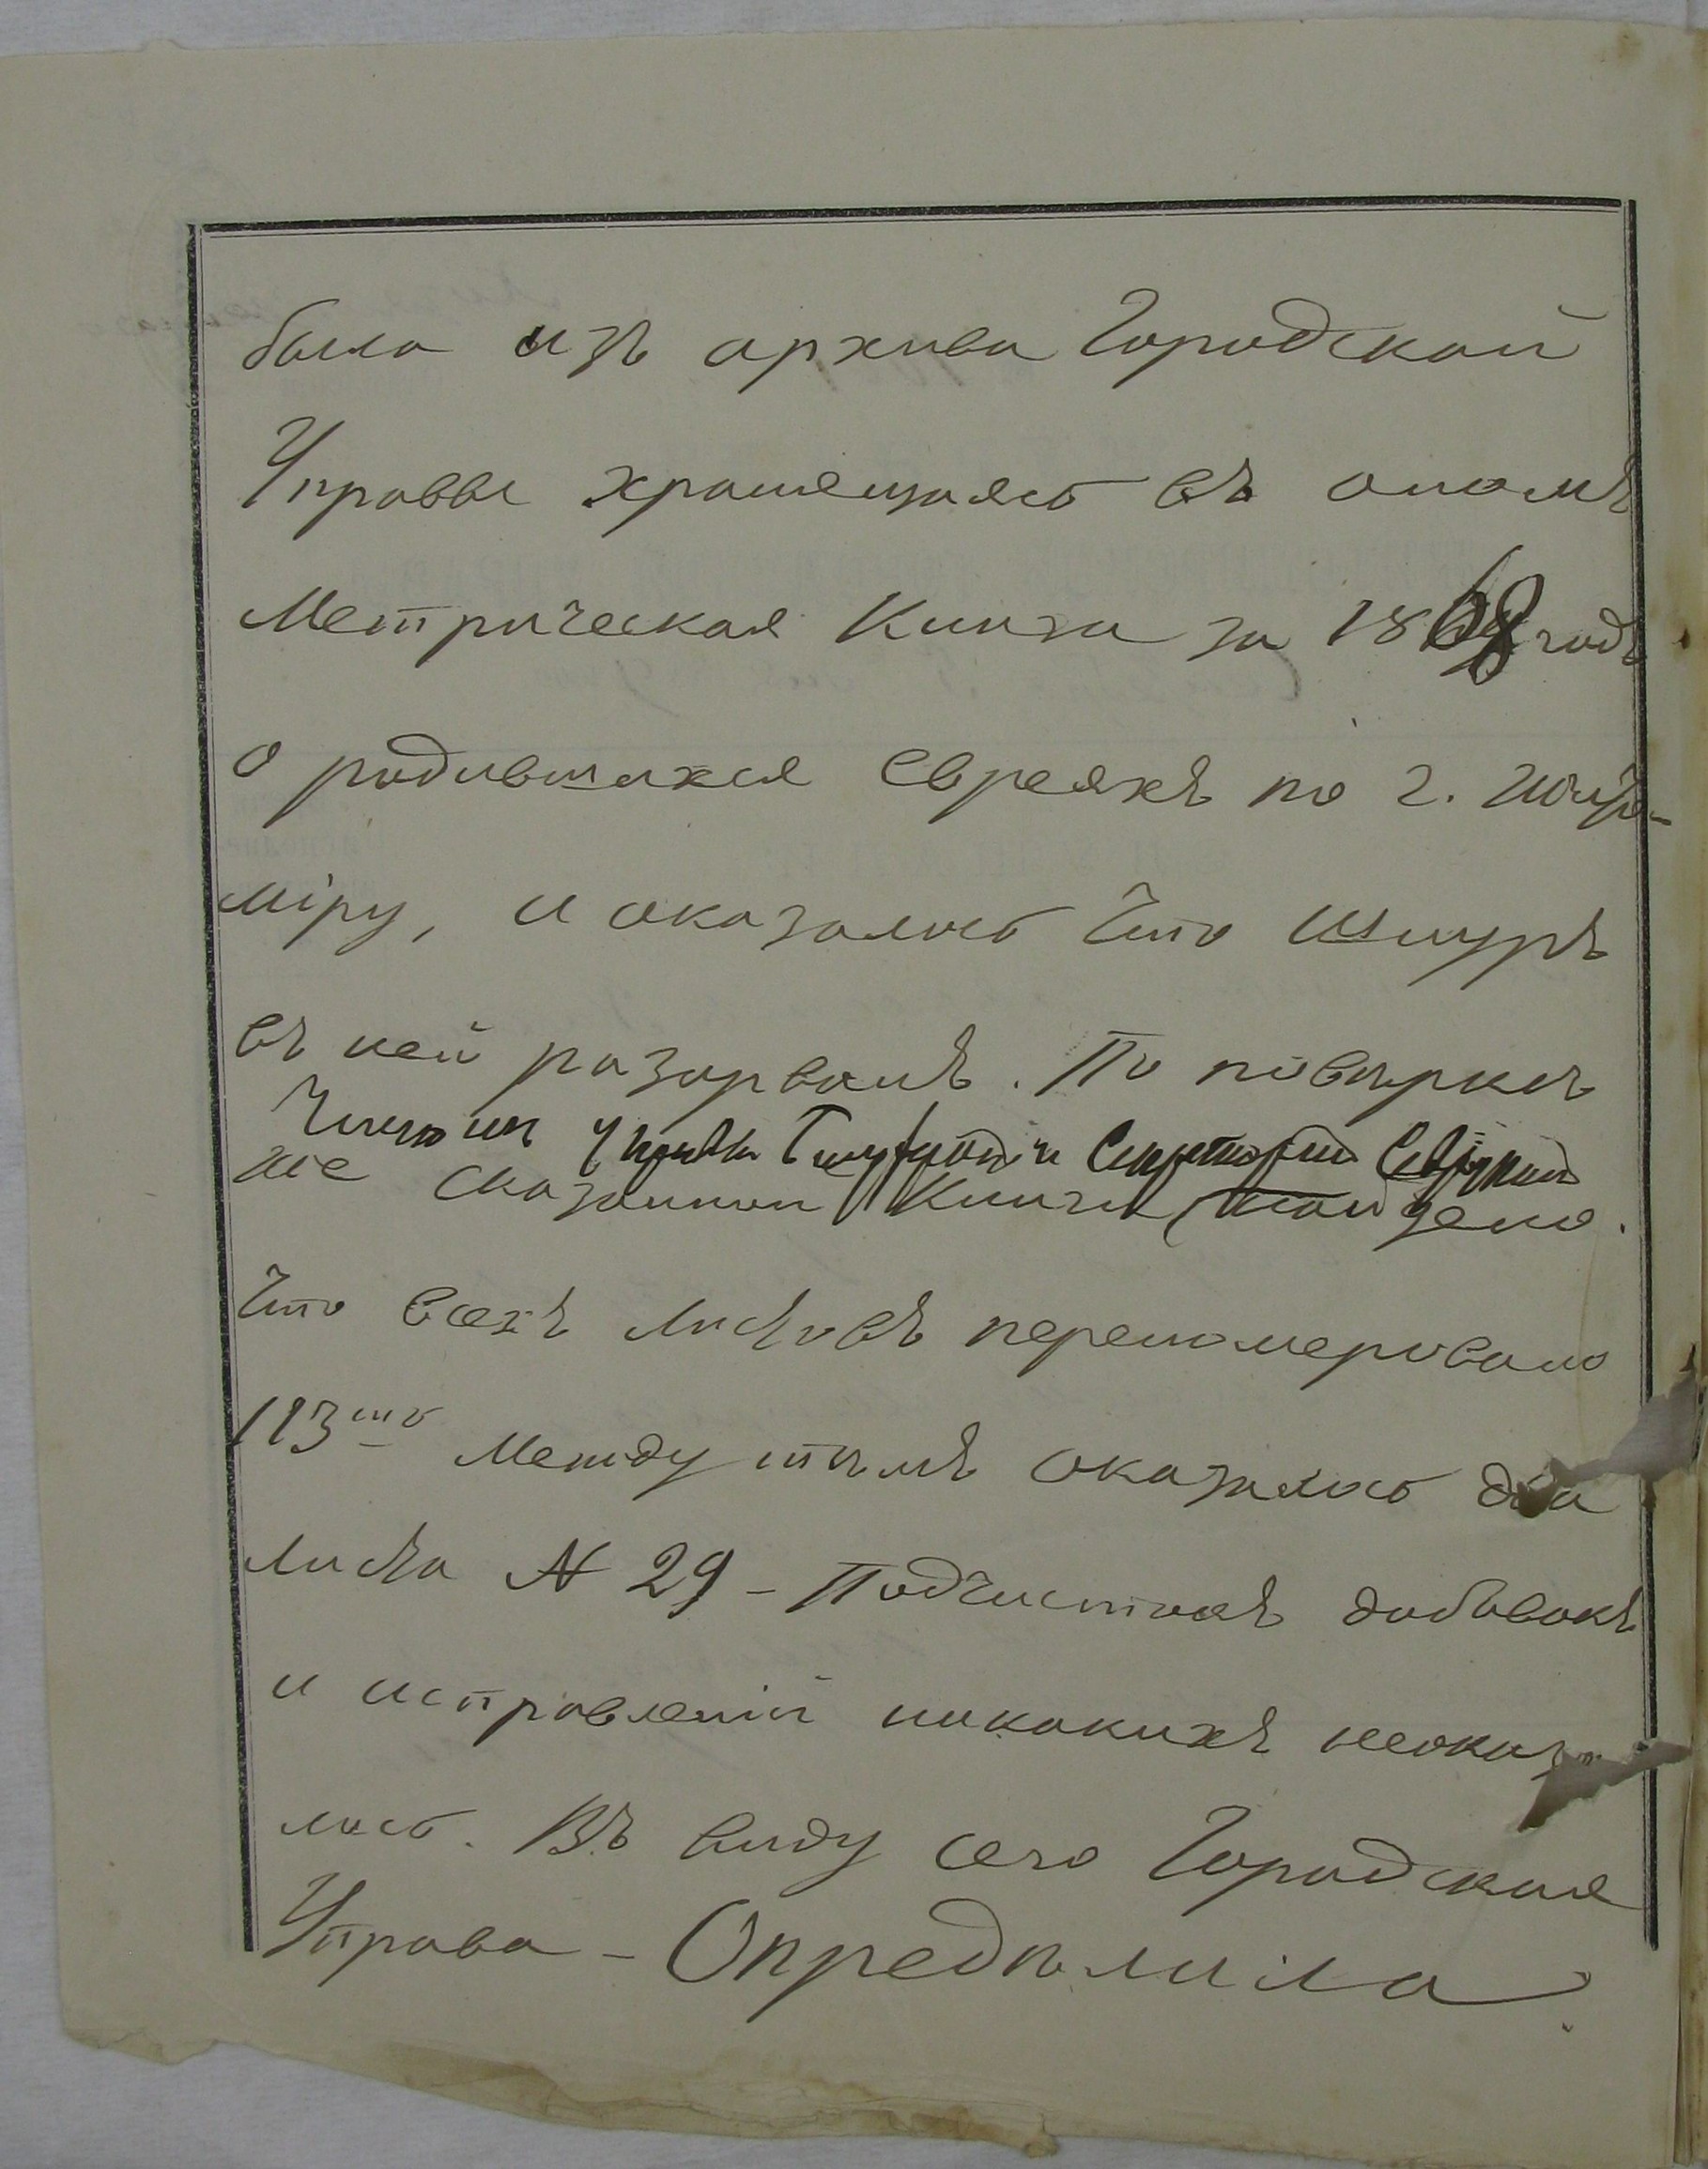 была изъ архива Городской
Управы хранящаясь въ ономъ
Метрическая Книга за 1868 годъ
о родившихся Евреяхъ по г. Жито-
міру, и оказалось что шнуръ
въ ней разорванъ. По повѣркѣ
Членомъ Управы и Секретаремъ
же сказанной Книги найдено.
что всехъ листовъ перенумеровано
113ть Между тѣмъ оказалось два
листа № 29 - Подчистокъ добавокъ
и исправленій никакихъ неоказа
лось. Въ виду сего Городская
Управа - Опредѣлила